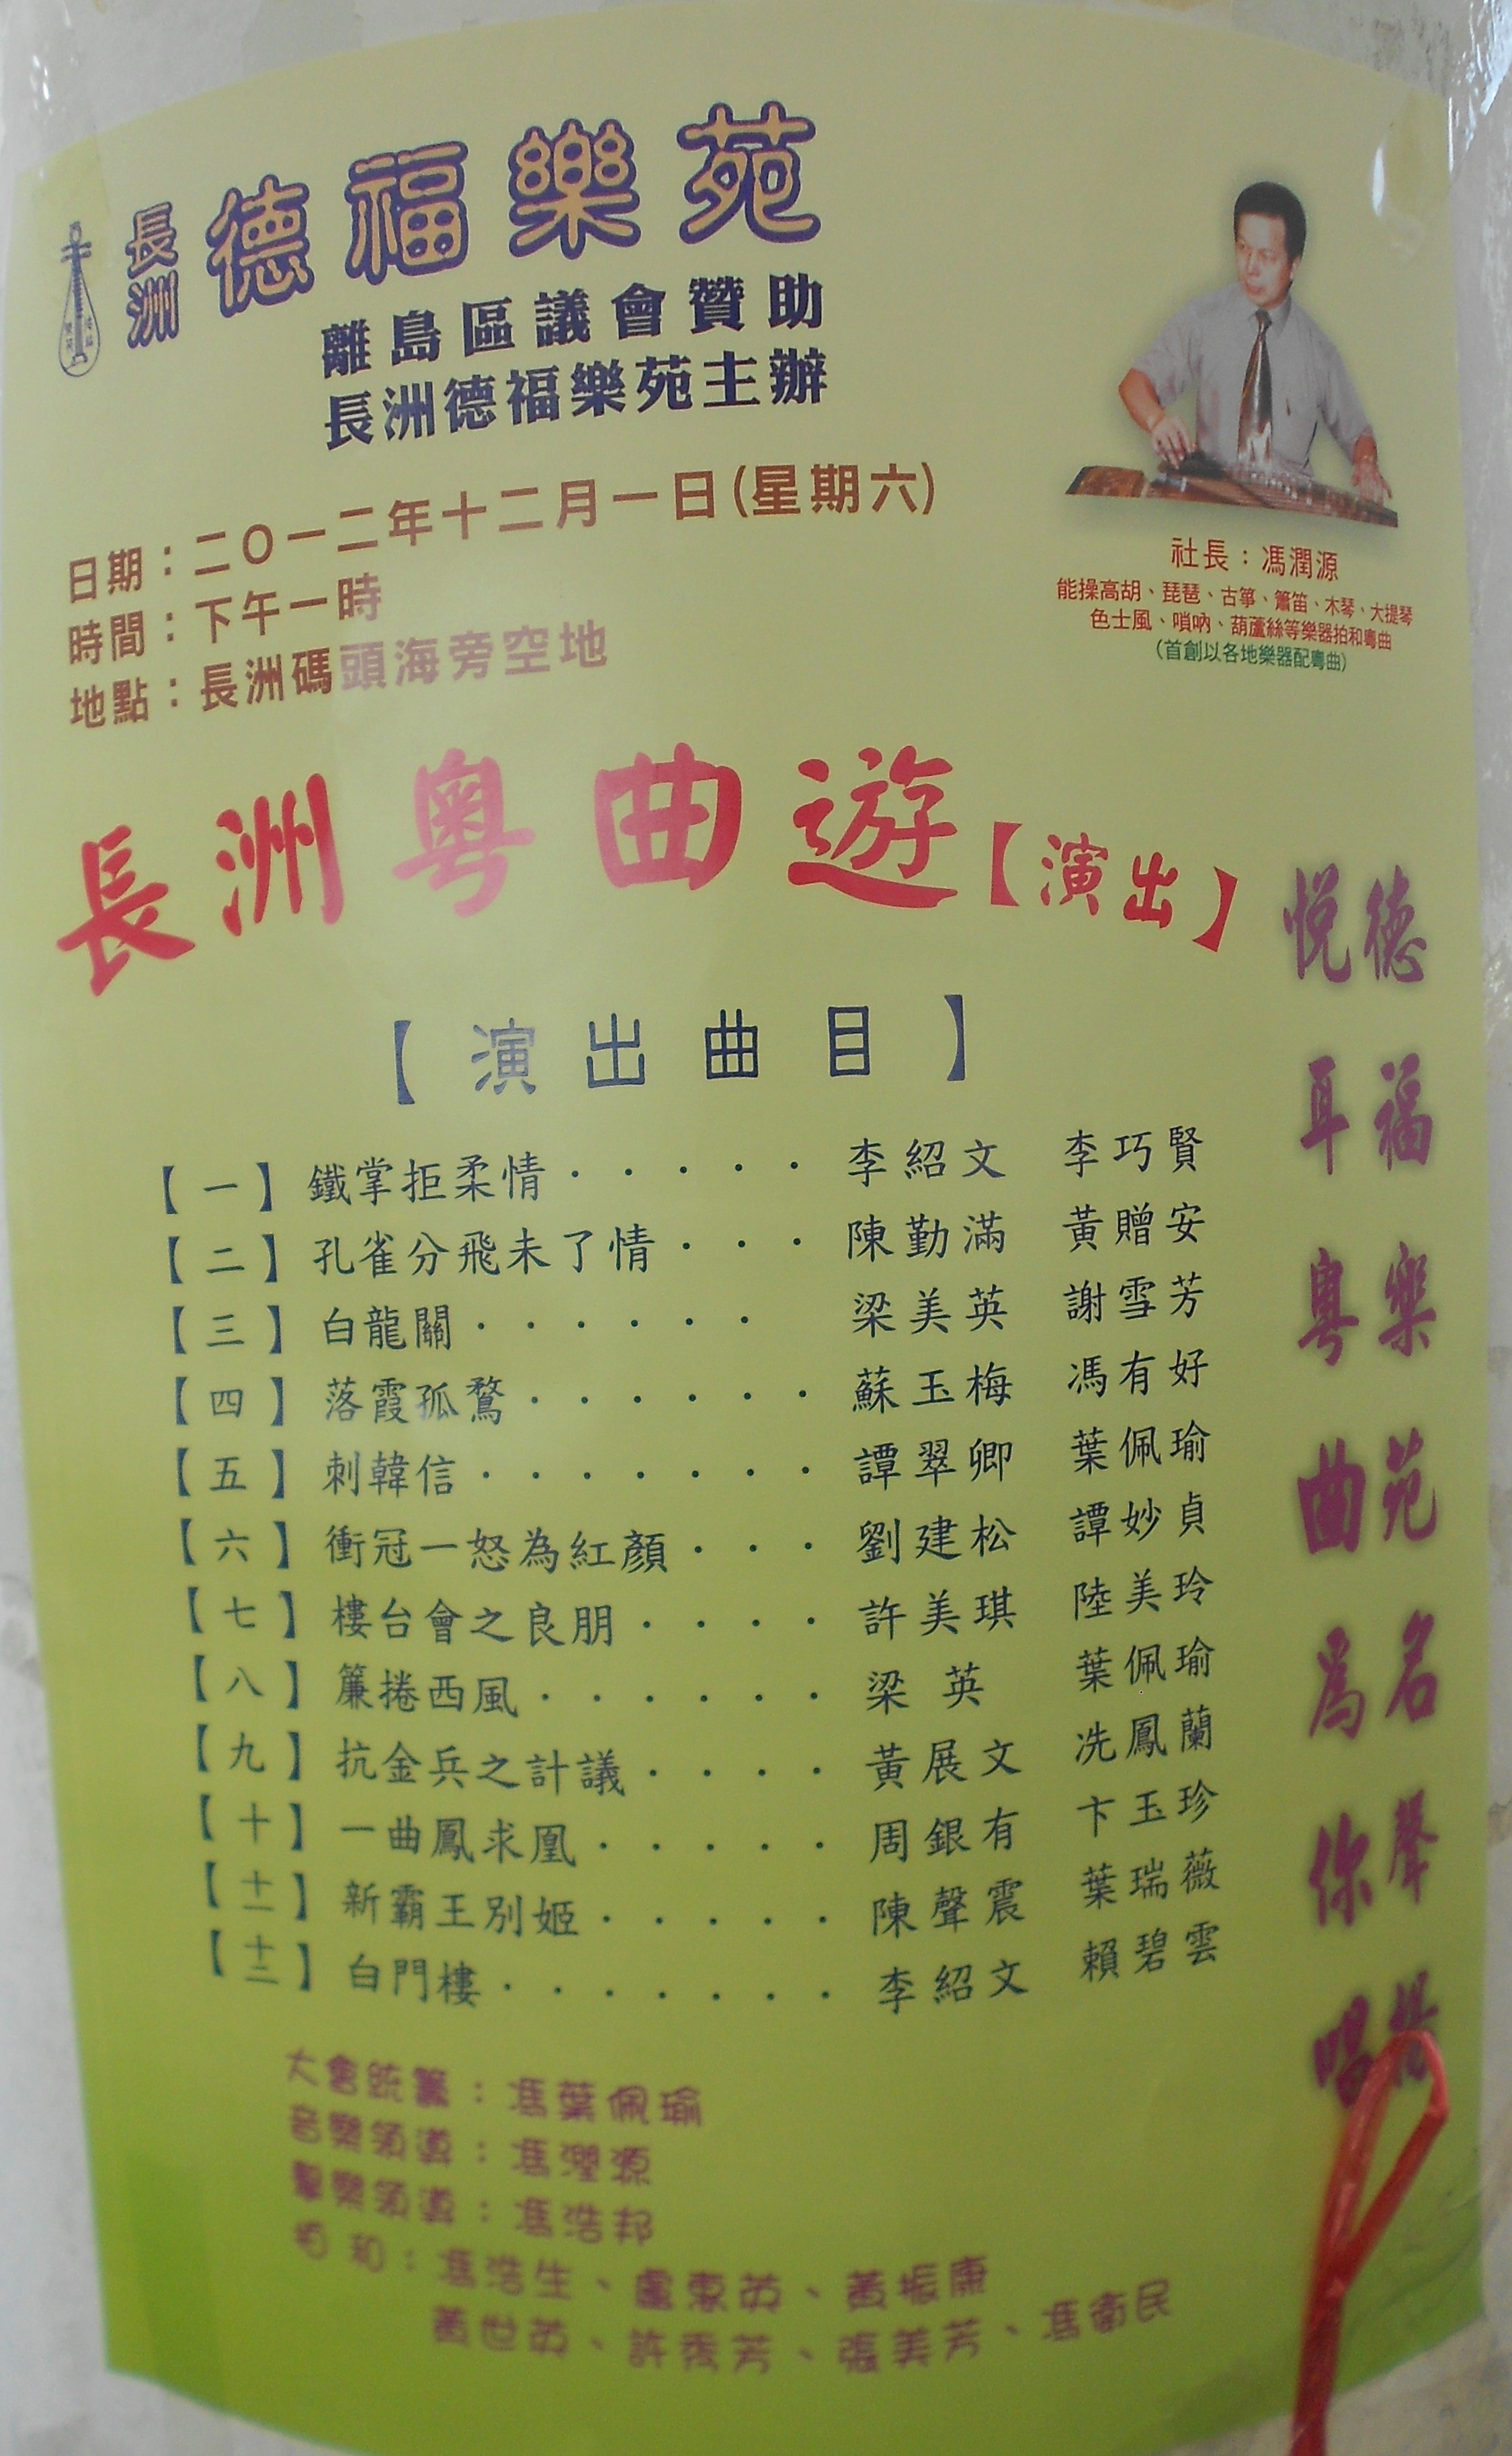 長洲 德福樂苑
離島區議會贊助
長洲德福樂苑主辦
日期：二○一二年十二月一日(星期六)
時間：下午一時
地點：長洲碼頭海旁空地
社長：馮潤源
能操高胡、琵琶、古箏、簫笛、木琴、大提琴
色士風、嗩吶、葫蘆絲等樂器拍和粵曲
(首創以各地樂器配粵曲)
長洲粵曲遊【演出】
德福樂苑名聲揚
悅耳粵曲為你唱
【演出曲目】
【一】鐵掌拒柔情・・・・・李紹文 李巧賢
【二】孔雀分飛未了情・・・陳勤滿 黃贈安
【三】白龍關・・・・・・梁美英 謝雪芳
【四】落霞孤鶩・・・・・・蘇玉梅 馮有好
【五】刺韓信・・・・・・・譚翠卿 葉佩瑜
【六】衝冠一怒為紅顏・・・劉建松 譚妙貞
【七】樓台會之良朋・・・・許美琪 陸美玲
【八】簾捲西風・・・・・・梁英 葉佩瑜
【九】抗金兵之計議・・・・黃展文 冼鳳蘭
【十】一曲鳳求凰・・・・・周銀有 卞玉珍
【十一】新霸王別姬・・・・・陳聲震 葉瑞薇
【十二】白門樓・・・・・・・李紹文 賴碧雲
大會統籌：馮葉佩瑜
音樂領導：馮潤源
擊樂領導：馮浩邦
拍和：馮浩生、盧惠英、黃振康
黃世英、許秀芳、張美芳、馮衛民